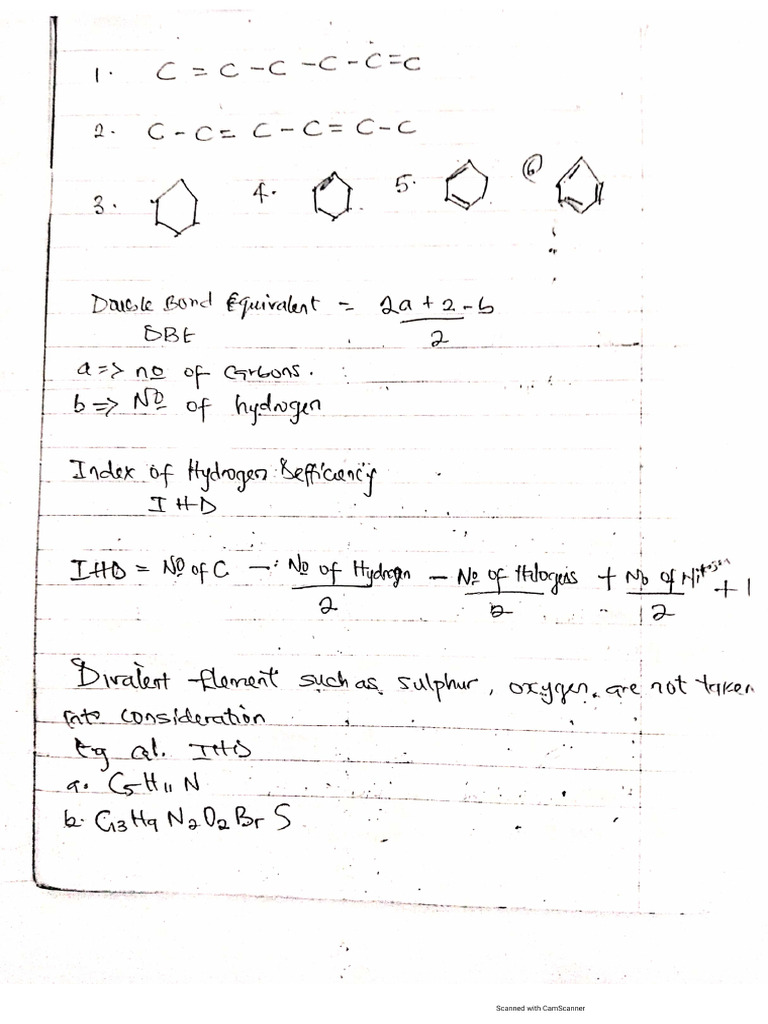 1. C = C - C - C - C = C
2. C - C = C - C = C - C
3. 4. 5. 6
Double Bond Equivalent = 2a + 2 - b
DBE 2
a => no of Carbons.
b => No of hydrogen
Index of Hydrogen Defficiency
IHD
IHD = No of C - No of Hydrogen - No of Halogens + No of Nitrogen + 1
2 2 2
Divalent element such as sulphur, oxygen, are not taken
into consideration
Eg cal. IHD
a. C5H11N
b. C13H9N2O2BrS
Scanned with CamScanner